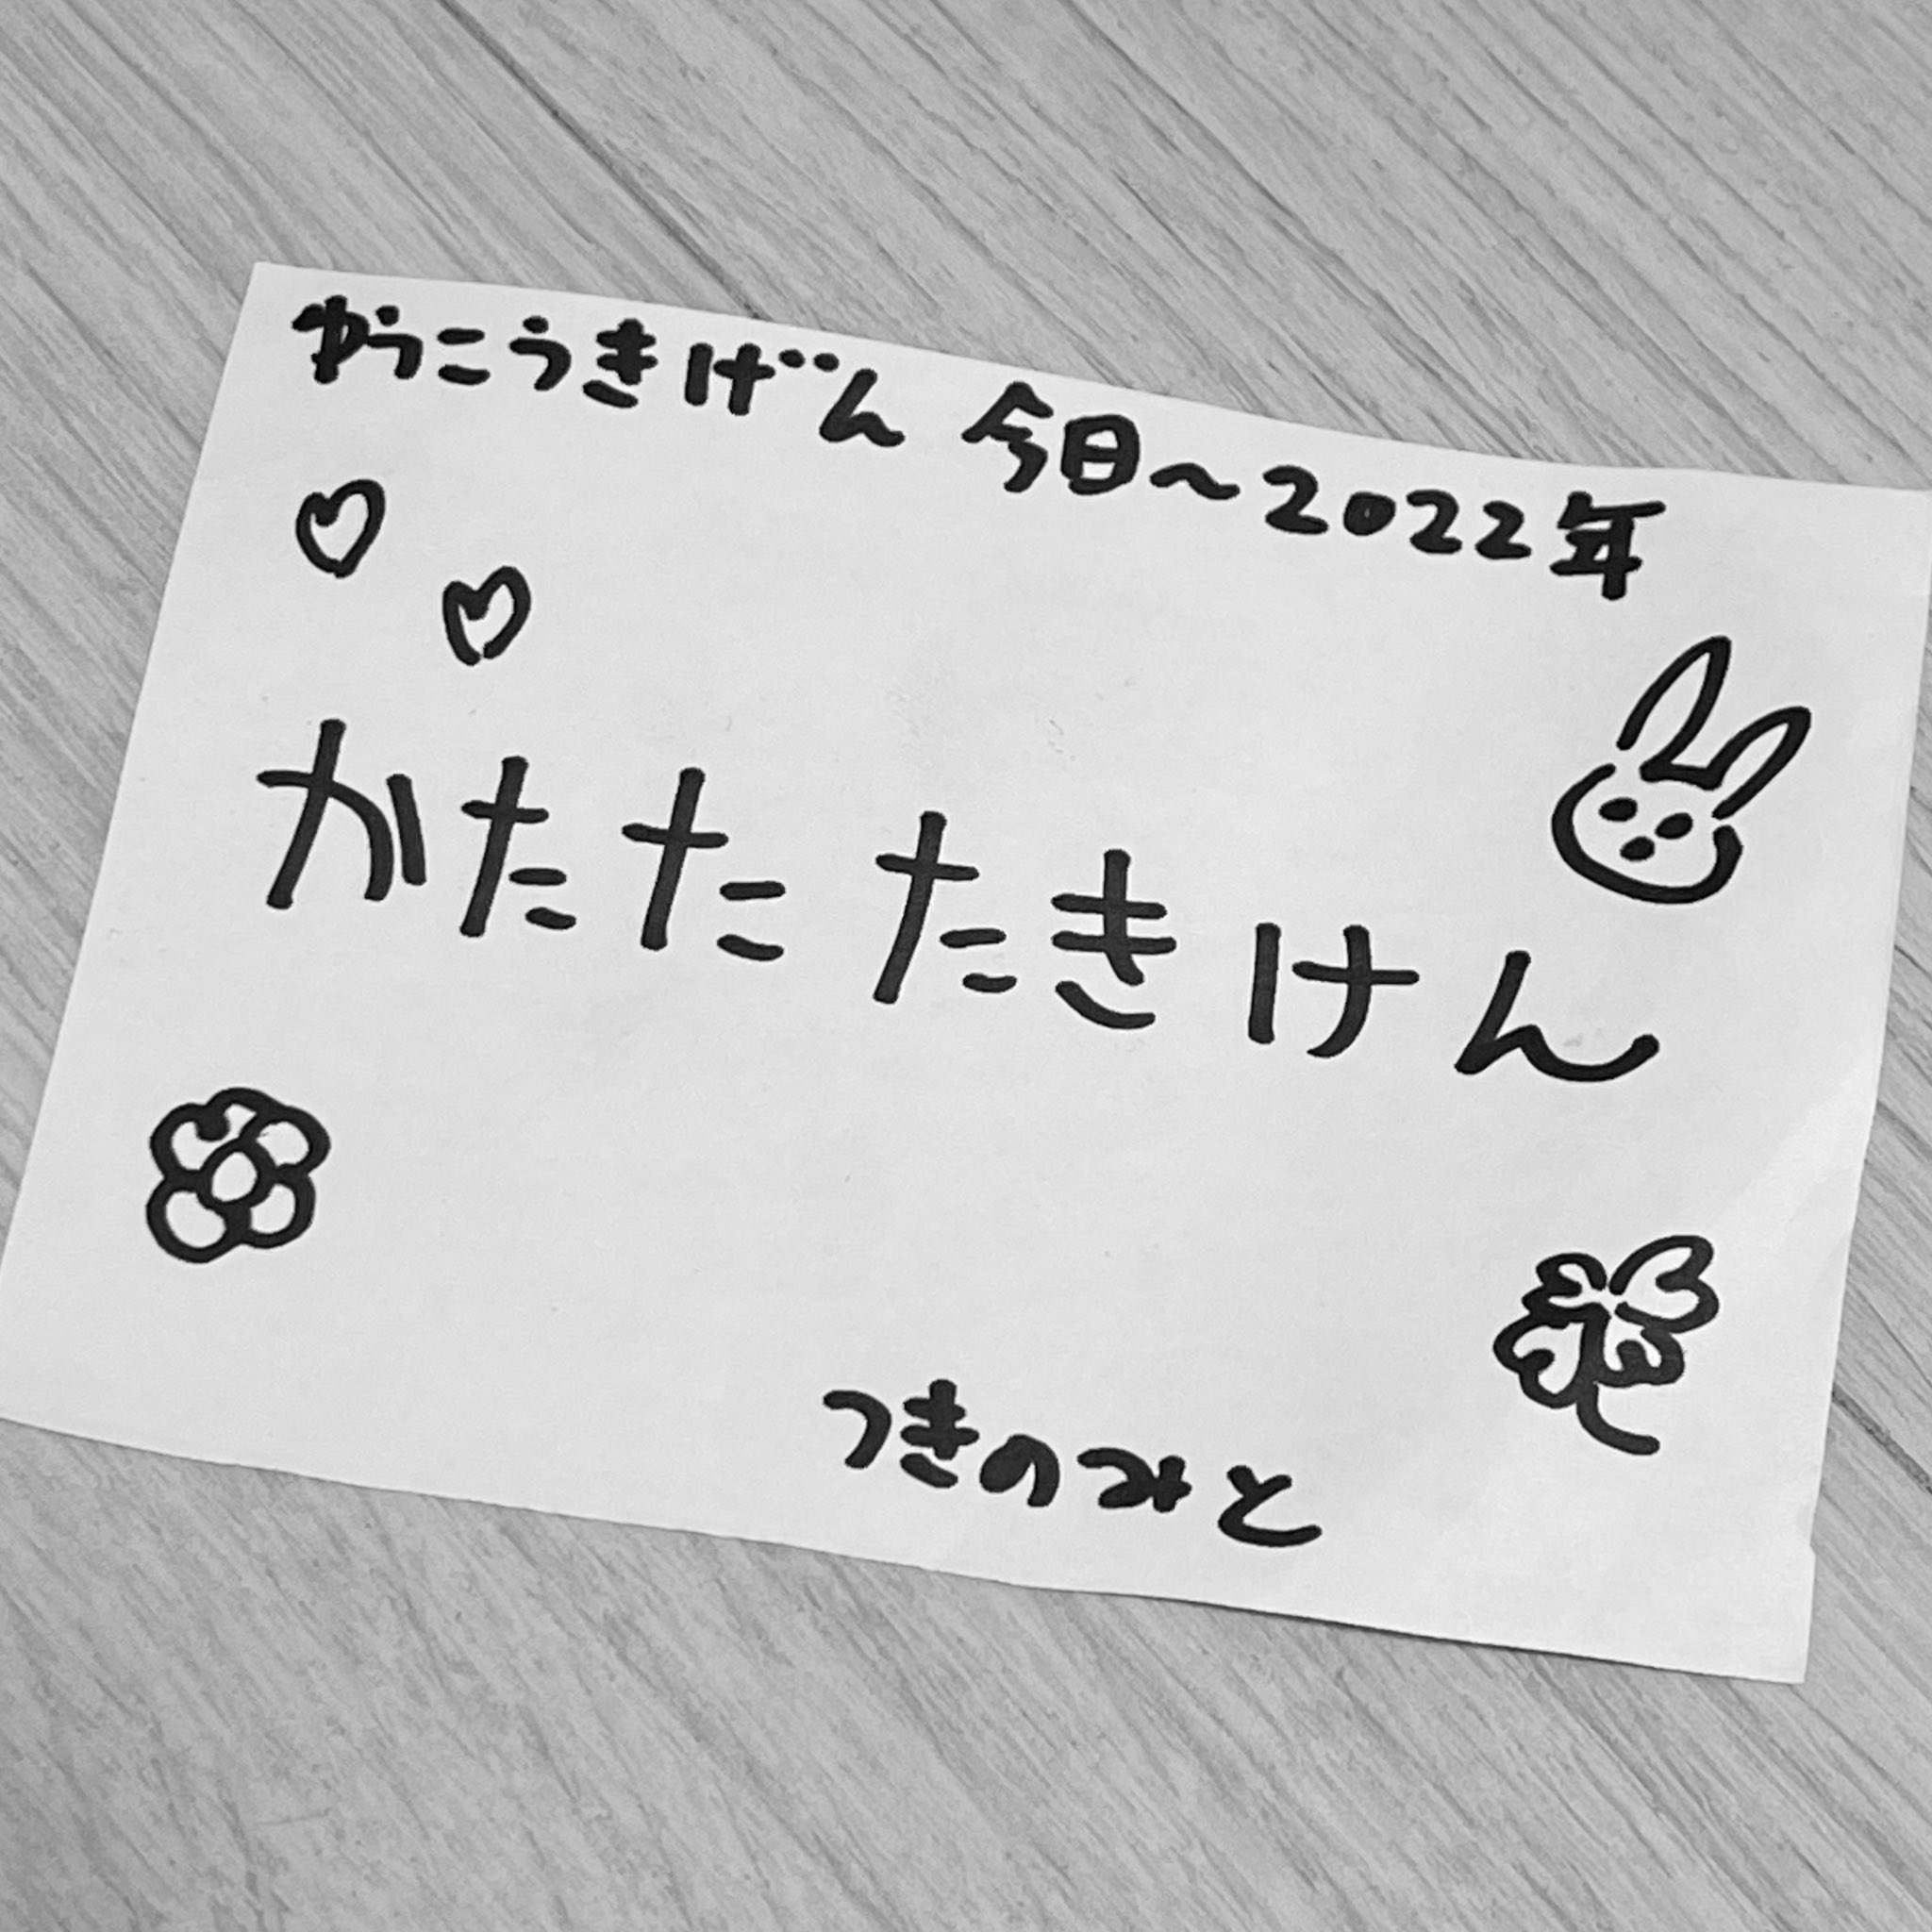 ゆうこうきげん 今日～2022年
かたたたきけん
つきのみと